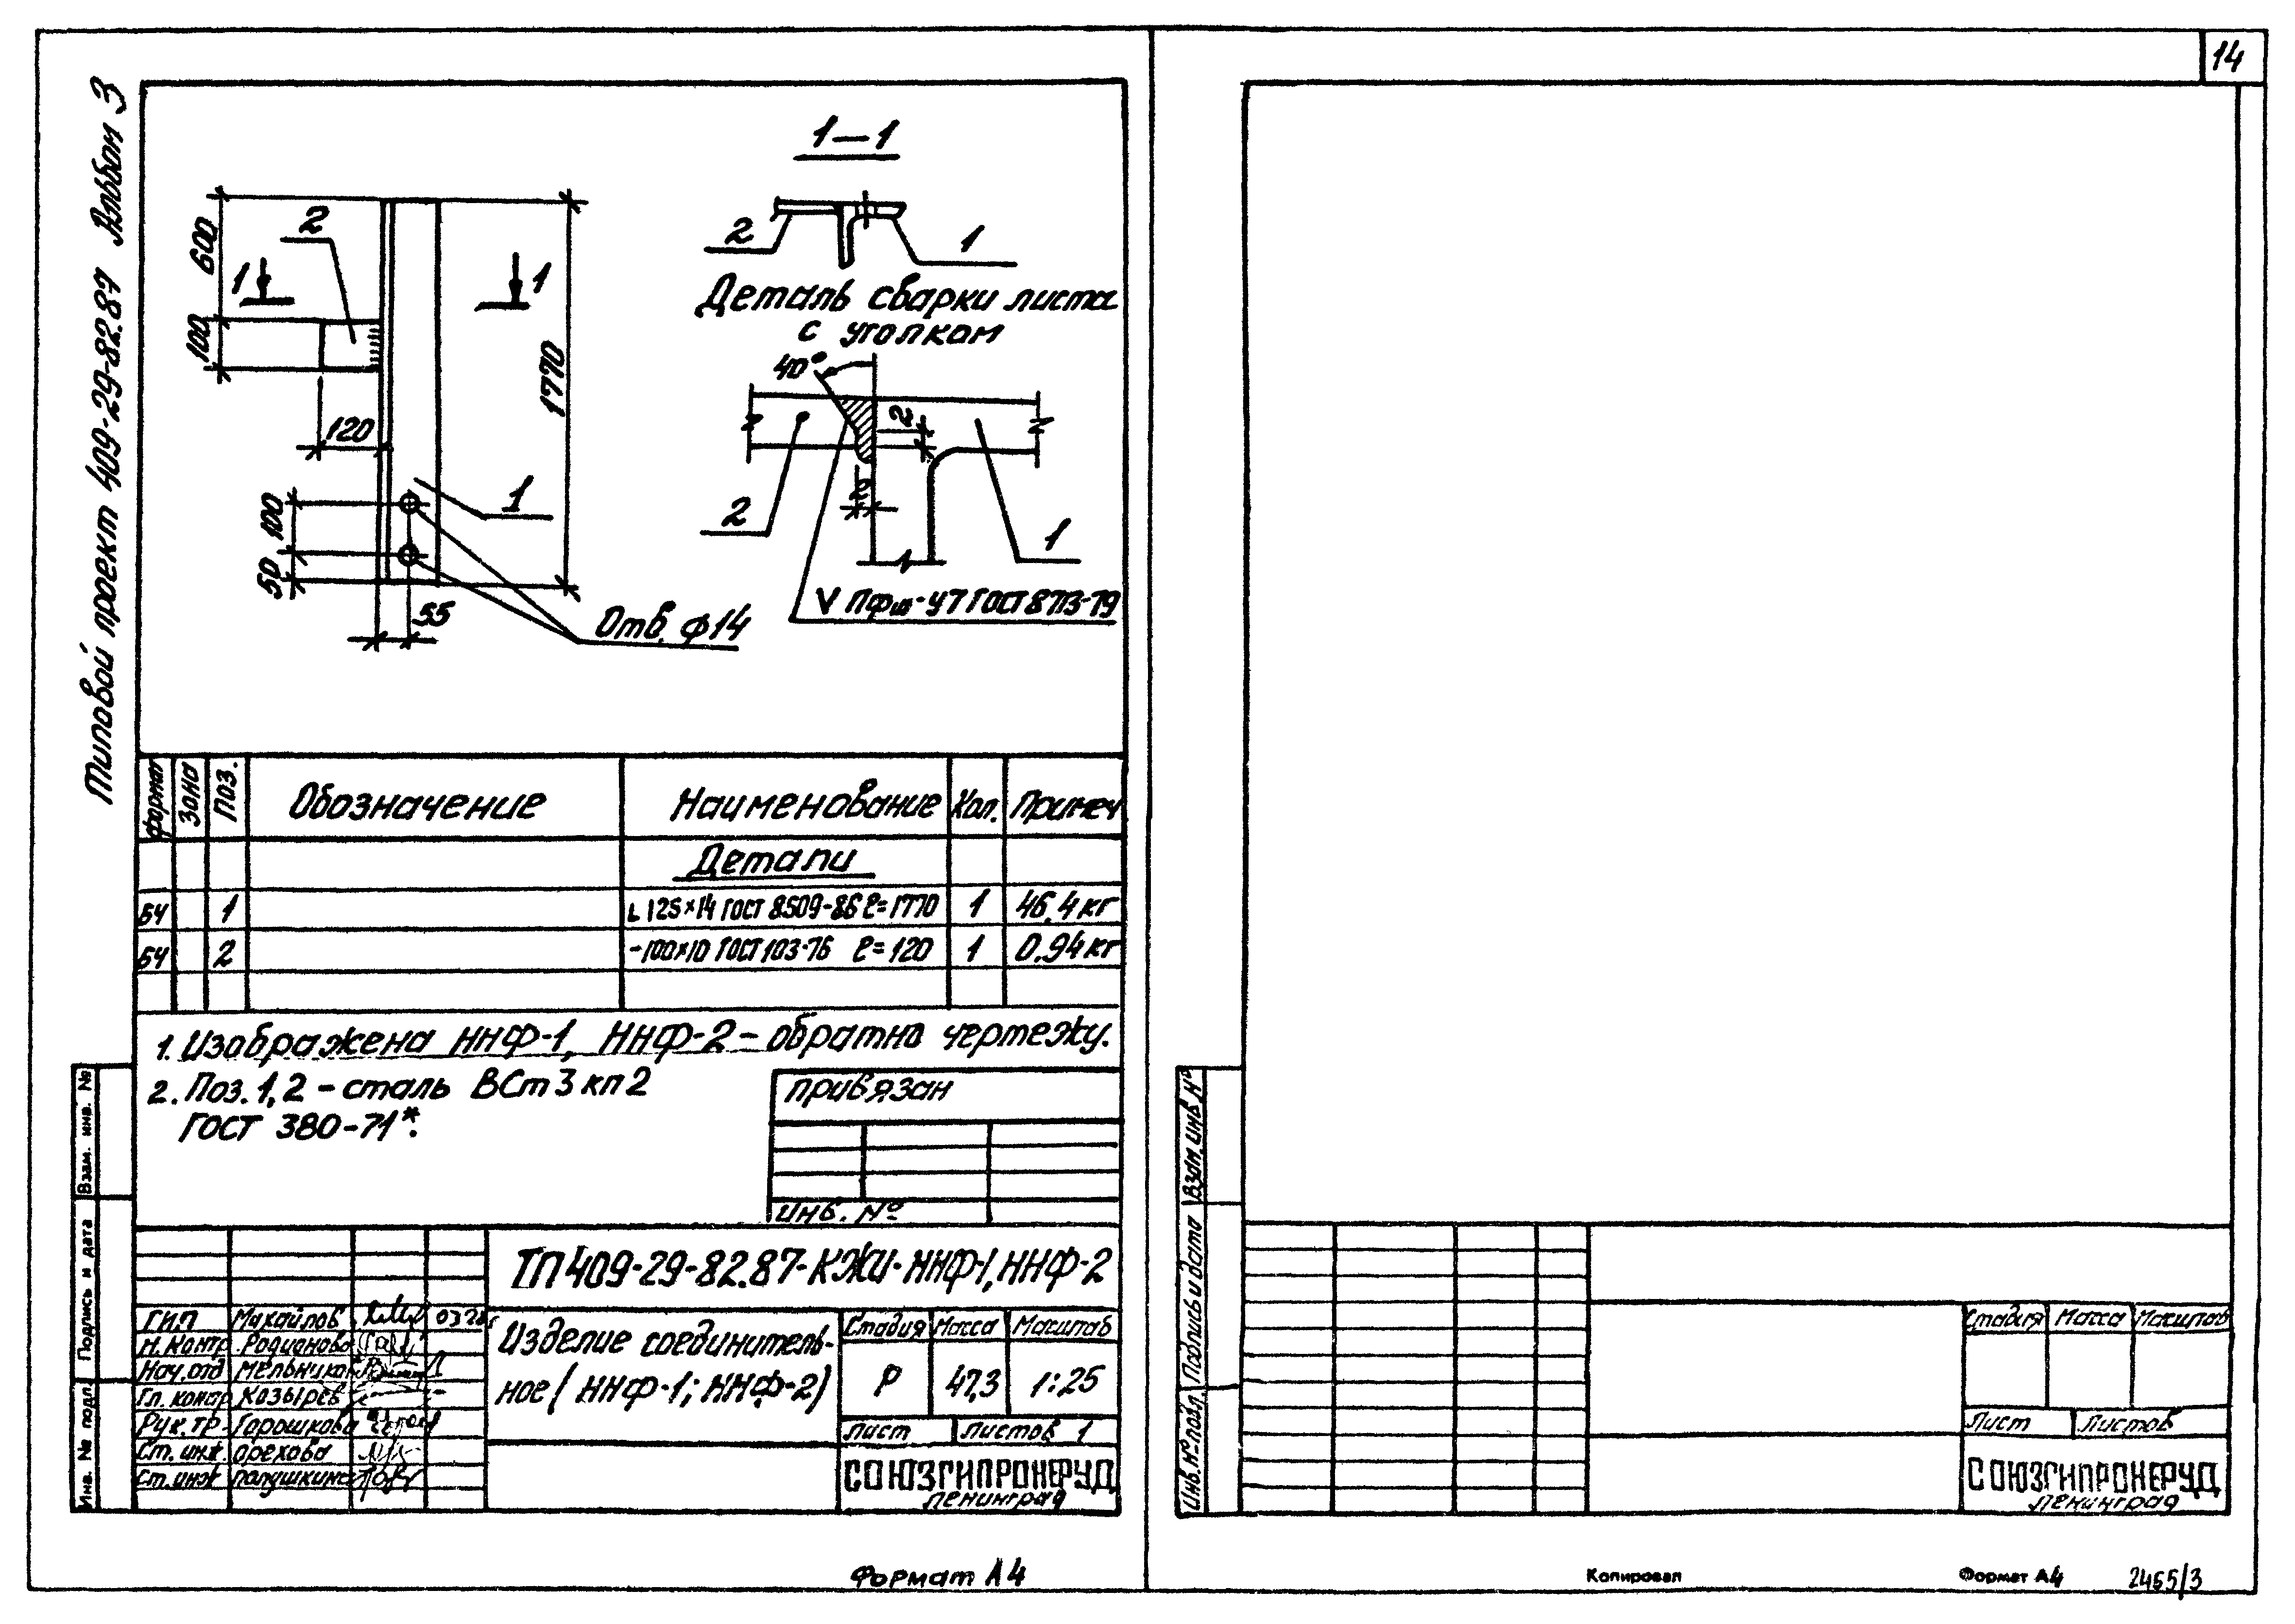 14
Типовой проект 409-29-82.87 Альбом 3
1-1
600
2
1
1
100
1770
120
100
50
1
55
Отв. ф14
2
1
Деталь сварки листа
с уголкам
40°
2
2
2
1
V Пфш-У7 ГОСТ 8713-79
Формат Зона Поз. Обозначение Наименование Кол. Примеч
Детали
БЧ 1 L 125×14 ГОСТ 8509-86 ℓ=1770 1 46,4 кг
БЧ 2 -100×10 ГОСТ 103-76 ℓ=120 1 0.94 кг
1. Изображена ННФ-1, ННФ-2 - обратна чертежу.
2. Поз. 1,2 - сталь ВСт3кп2
ГОСТ 380-71*.
Привязан
Инв. №
ТП 409-29-82.87-КЖИ-ННФ-1, ННФ-2
ГИП Михайлов
Н. контр. Родионова
Нач. отд Мельников
Гл. констр Козырев
Рук. гр. Горошкова
Ст. инж. Орехова
Ст. инж
Изделие соединитель-
ное (ННФ-1; ННФ-2)
Стадия Масса Масштаб
Р 47,3 1:25
Лист Листов 1
СОЮЗГИПРОНЕРУД
Ленинград
Взам. инв. №
Подпись и дата
Инв. № подл.
Формат А4
Взам. инв №
Подпись и дата
Инв. № подл
Стадия Масса Масштаб
Лист Листов
СОЮЗГИПРОНЕРУД
Ленинград
Копировал Формат А4 2455/3